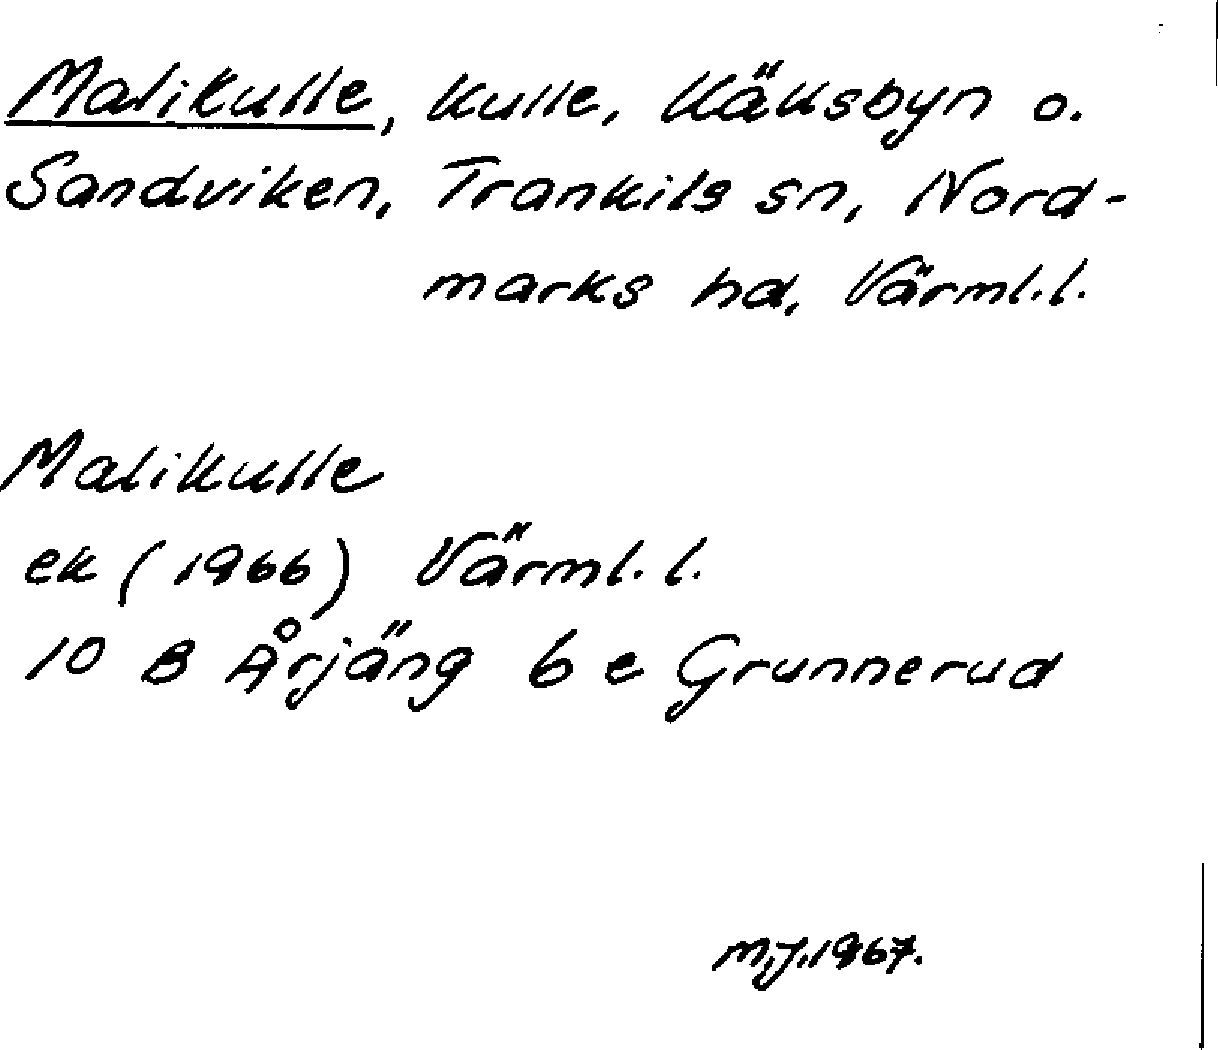 Malikulle, kulle, Käksbyn o.
Sandviken, Trankils sn, Nord-
marks hd, Värml.l.
Malikulle
ek (1966) Värml. l.
10 B Årjäng 6 e Grunnerud
M.J.1967.